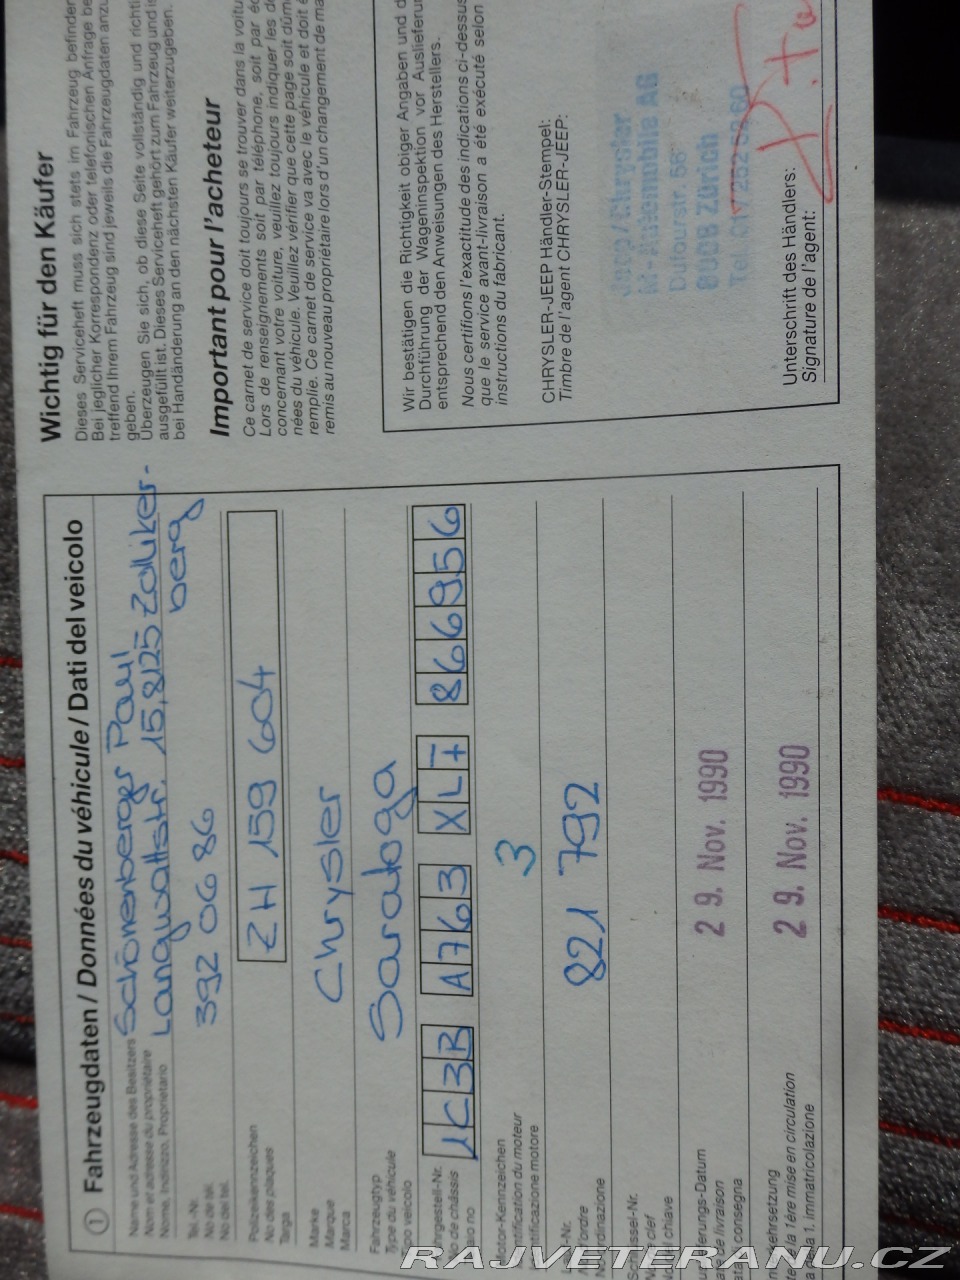 ① Fahrzeugdaten / Données du véhicule / Dati del veicolo
Name und Adresse des Besitzers
Nom et adresse du propriétaire
Nome, Indirizzo, Proprietario
Schönenberger Paul
Langwattstr. 15, 8125 Zolliker-
berg
Tel.-Nr.
No de tél.
No del tel.
392 06 86
Polizeikennzeichen
No des plaques
Targa
ZH 159 604
Marke
Marque
Marca
Chrysler
Fahrzeugtyp
Type du véhicule
Tipo veicolo
Saratoga
Fahrgestell-Nr.
No de châssis
1C3B A763 XLT 866956
Motor-Kennzeichen
ntification du moteur
ntificazione motore
3
821 792
l'ordre
rdinazione
ssel-Nr.
clef
chiave
erungs-Datum
de livraison
consegna
29. Nov. 1990
rkehrsetzung
e la 1ère mise en circulation
a 1. immatricolazione
29. Nov. 1990
Wichtig für den Käufer
Dieses Serviceheft muss sich stets im Fahrzeug befinden
Bei jeglicher Korrespondenz oder telefonischen Anfrage be
treffend Ihrem Fahrzeug sind jeweils die Fahrzeugdaten anzu
geben.
Überzeugen Sie sich, ob diese Seite vollständig und richti
ausgefüllt ist. Dieses Serviceheft gehört zum Fahrzeug und is
bei Handänderung an den nächsten Käufer weiterzugeben.
Important pour l'acheteur
Ce carnet de service doit toujours se trouver dans la voitu
Lors de renseignements soit par téléphone, soit par éc
concernant votre voiture, veuillez toujours indiquer les do
nées du véhicule. Veuillez vérifier que cette page soit dûm
remplie. Ce carnet de service va avec le véhicule et doit ê
remis au nouveau propriétaire lors d'un changement de ma
Wir bestätigen die Richtigkeit obiger Angaben und d
Durchführung der Wageninspektion vor Auslieferun
entsprechend den Anweisungen des Herstellers.
Nous certifions l'exactitude des indications ci-dessus
que le service avant-livraison a été exécuté selon
instructions du fabricant.
CHRYSLER-JEEP Händler-Stempel:
Timbre de l'agent CHRYSLER-JEEP:
Jeep/Chrysler
Automobile AG
Dufourstr. 56
8008 Zürich
Tel. 01/252 52 60
Unterschrift des Händlers:
Signature de l'agent:
RAJVETERANU.CZ